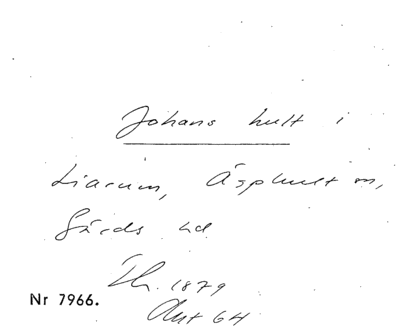 Johans hult i
Liarum, Äsphult sn,
Gärds hd
Th. 1879
Avt 64
Nr 7966.